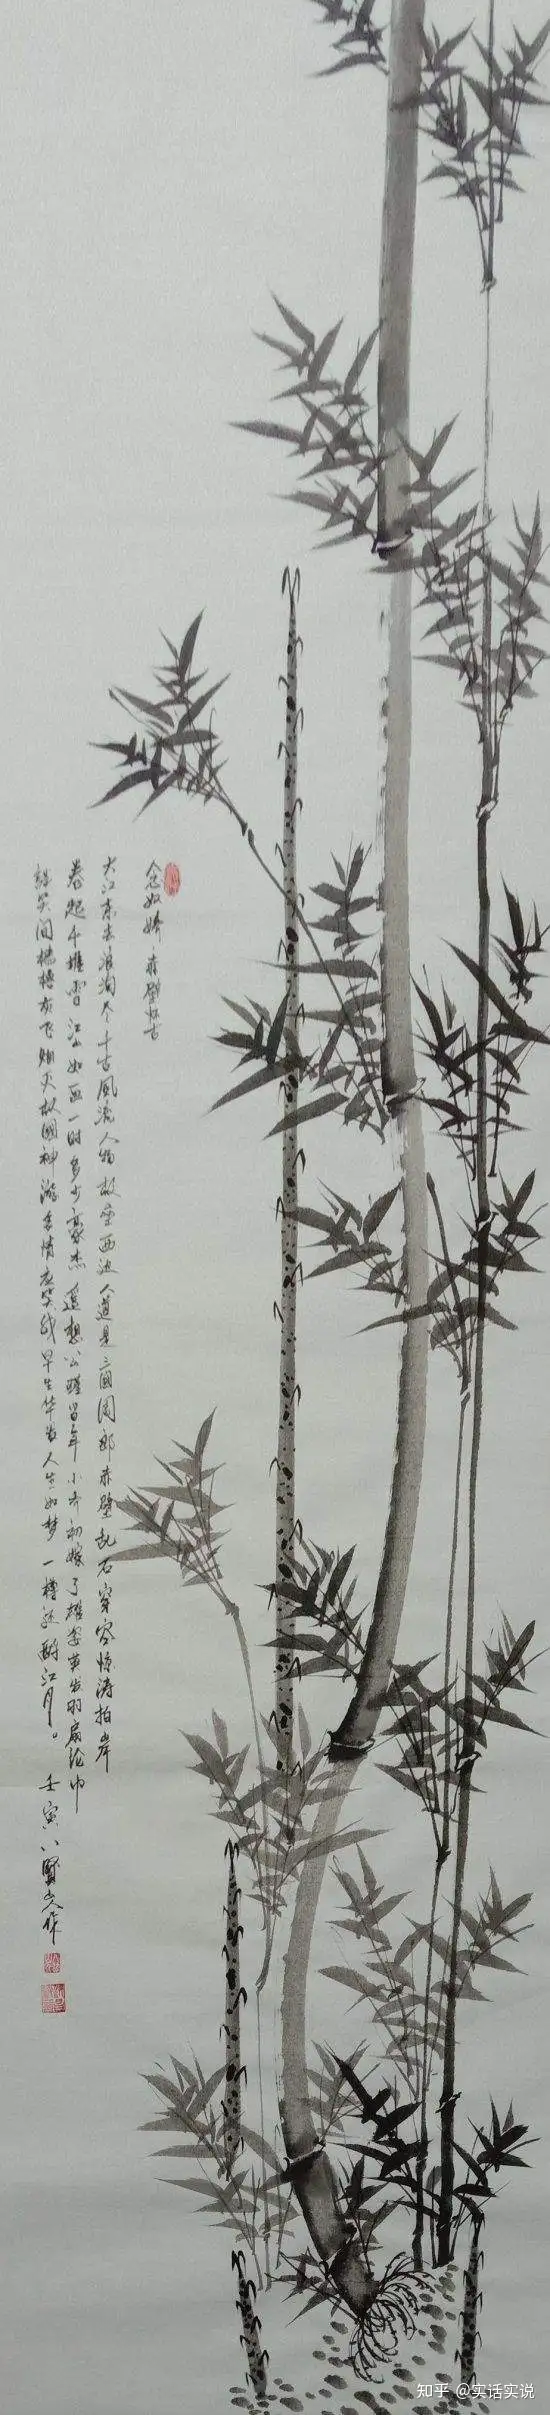 念奴娇 赤壁怀古
大江东去浪淘尽千古風流人物故垒西边人道是三國周郎赤壁乱石穿空惊涛拍岸
卷起千堆雪江山如画一时多少豪杰遥想公瑾当年小乔初嫁了雄姿英发羽扇纶巾
談笑间樯橹灰飞烟灭故國神游多情应笑我早生华发人生如梦一樽还酹江月。壬寅八
作
知乎 @实话实说